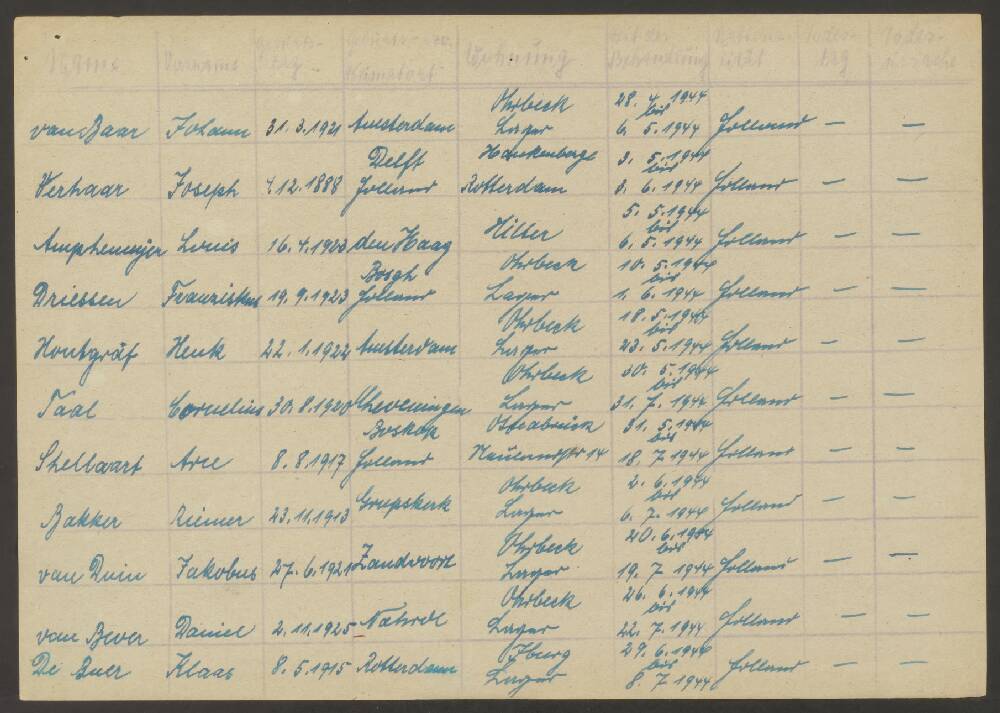 Name Vorname Geburts- tag Geburts- u. Heimatort Wohnung Zeit der Behandlung Nationa- lität Todes- tag Todes- ursache
van Baar Johann 31.3.1921 Amsterdam Ohrbeck Lager 28.4.1944 bis 6.5.1944 Holland — —
Verhaar Joseph 4.12.1888 Delft Holland Hankenberge Rotterdam 3.5.1944 bis 8.6.1944 Holland — —
Louis 16.4.1923 den Haag Hilter 5.5.1944 bis 6.5.1944 Holland — —
Driessen Franziskus 19.9.1923 Bosgh Holland Ohrbeck Lager 10.5.1944 bis 1.6.1944 Holland — —
Houtgräf Henk 22.1.1922 Amsterdam Ohrbeck Lager 18.5.1944 bis 23.5.1944 Holland — —
Taal Cornelius 30.8.1920 Scheveningen Ohrbeck Lager 20.5.1944 bis 31.7.1944 Holland — —
Shellwart Arie 8.8.1917 Boskok Holland Osnabrück 14 31.5.1944 bis 18.7.1944 Holland — —
Bakker Riemer 23.11.1913 Grupskerk Ohrbeck Lager 2.6.1944 bis 6.7.1944 Holland — —
van Duin Jakobus 27.6.1921 Zandvoort Ohrbeck Lager 20.6.1944 bis 19.7.1944 Holland — —
van Bever Daniel 2.11.1925 Ohrbeck Lager 26.6.1944 bis 22.7.1944 Holland — —
De Buer Klaas 8.5.1915 Rotterdam Iburg Lager 29.6.1944 bis 8.7.1944 Holland — —